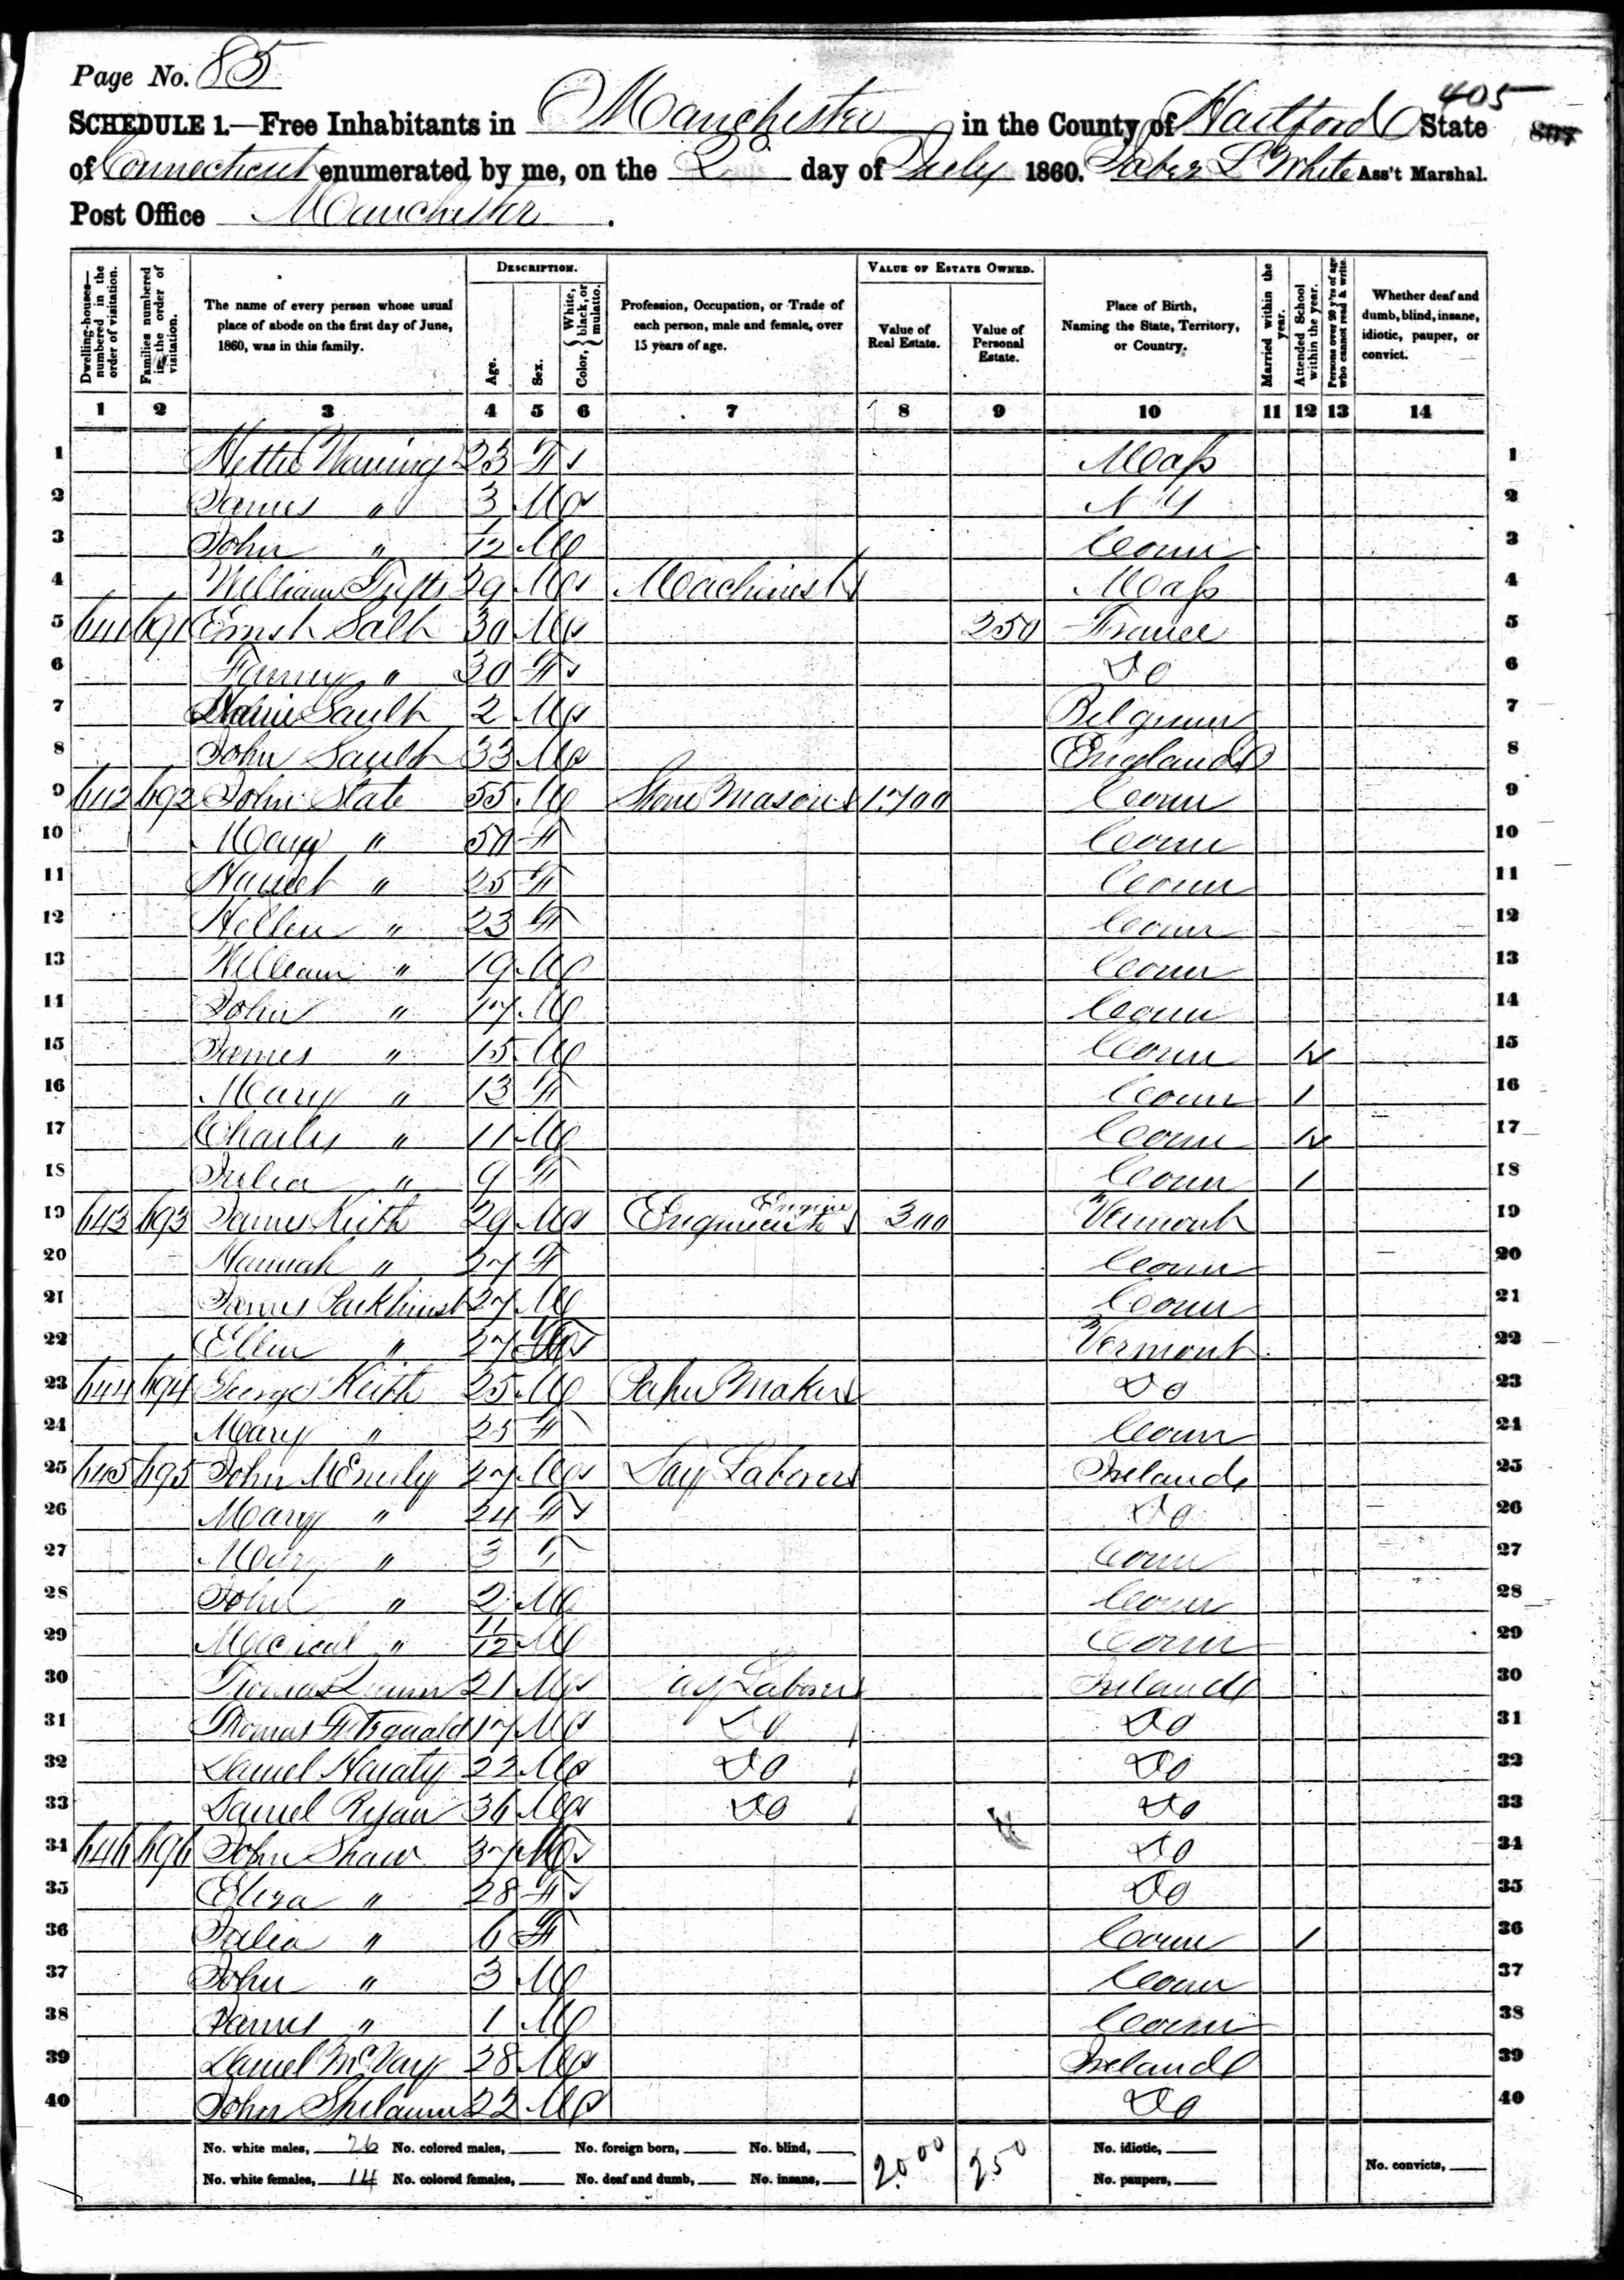 Page No. 85
405
SCHEDULE 1.—Free Inhabitants in Manchester in the County of Hartford State
of Connecticut enumerated by me, on the 2 day of July 1860. L White Ass't Marshal.
Post Office Manchester.
Dwelling-houses—numbered in the order of visitation.
Families numbered in the order of visitation.
The name of every person whose usual place of abode on the first day of June, 1860, was in this family.
DESCRIPTION.
Age.
Sex.
Color, { White, black, or mulatto.
Profession, Occupation, or Trade of each person, male and female, over 15 years of age.
VALUE OF ESTATE OWNED.
Value of Real Estate.
Value of Personal Estate.
Place of Birth, Naming the State, Territory, or Country.
Married within the year.
Attended School within the year.
Persons over 20 y'rs of age who cannot read & write.
Whether deaf and dumb, blind, insane, idiotic, pauper, or convict.
1 2 3 4 5 6 7 8 9 10 11 12 13 14
1 Hettie Waring 23 F Mass 1
2 James " 3 M N Y 2
3 John " /12 M Conn 3
4 William Tufts 29 M Machinest Mass 4
5 641 691 30 M 250 France 5
6 Fanny " 30 F Do 6
7 Sault 2 M Belgium 7
8 John Sault 33 M England 8
9 642 692 John State 55 M Stone Mason 1700 Conn 9
10 Mary " 50 F Conn 10
11 " 25 F Conn 11
12 Hellen " 23 F Conn 12
13 William " 19 M Conn 13
14 John " 17 M Conn 14
15 James " 15 M Conn 1 15
16 Mary " 13 F Conn 1 16
17 Charles " 11 M Conn 1 17
18 Julia " 9 F Conn 1 18
19 643 693 James Keith 29 M Engine 300 Vermont 19
20 Hannah " 27 F Conn 20
21 James Parkhurst 27 M Conn 21
22 Ellen " 27 Vermont 22
23 644 694 George Keith 25 M Paper Maker Do 23
24 Mary " 25 F Conn 24
25 645 695 John 27 M Day Laborer Ireland 25
26 Mary " 24 F Do 26
27 Mary " 3 F Conn 27
28 John " 2 M Conn 28
29 " 11/12 M Conn 29
30 Thomas Quinn 21 M ay Laborer Ireland 30
31 Thomas Fitzgerald 17 M Do Do 31
32 Daniel 22 M Do Do 32
33 Daniel Ryan 36 M Do Do 33
34 646 696 John Shaw 37 M Do 34
35 Eliza " 28 F Do 35
36 Julia " 6 F Conn 1 36
37 John " 3 M Conn 37
38 James " 1 M Conn 38
39 Daniel McVay 28 M Ireland 39
40 John 22 M Do 40
No. white males, 26 No. colored males, No. foreign born, No. blind, 2000 250 No. idiotic,
No. white females, 14 No. colored females, No. deaf and dumb, No. insane, No. paupers, No. convicts,